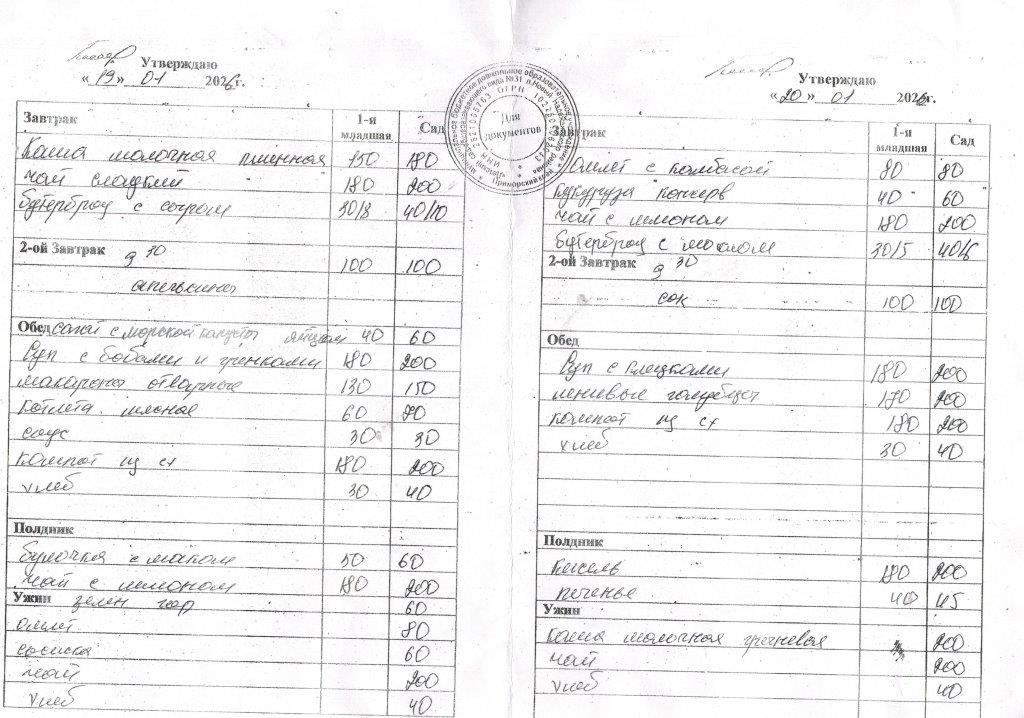 Утверждаю
«19» 01 2026г.
Завтрак 1-я младшая Сад
Каша молочная пшенная 150 180
чай сладкий 180 200
бутерброд с сыром 30/8 40/10
2-ой Завтрак 9 30 100 100
апельсины
Обед салат с морской капусты яйцом 40 60
Суп с бобами и гренками 180 200
макароны отварные 130 150
котлета мясная 60 80
соус 30 30
компот из сх 180 200
хлеб 30 40
Полдник
булочка с маком 50 60
чай с лимоном 180 200
Ужин зелен гор 60
омлет 80
сосиска 60
чай 200
хлеб 40
Для документов
Утверждаю
«20» 01 2026г.
Завтрак 1-я младшая Сад
Омлет с колбасой 80 80
кукуруза консерв 40 60
чай с лимоном 180 200
бутерброд с маслом 30/5 40/6
2-ой Завтрак 9 30
сок 100 100
Обед
Суп с клецками 180 200
ленивые голубцы 170 200
компот из сх 180 200
хлеб 30 40
Полдник
кисель 180 200
печенье 40 45
Ужин
каша молочная гречневая 200
чай 200
хлеб 40